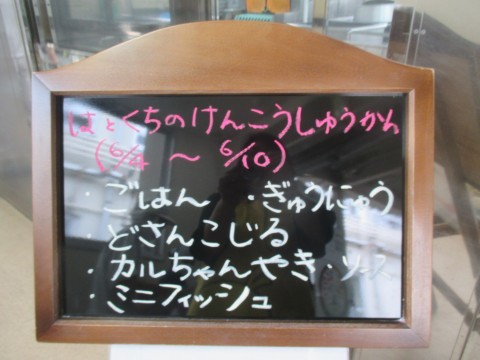 はとくちのけんこうしゅうかん
(6/4 ～ 6/10)
・ごはん ・ぎゅうにゅう
・どさんこじる
・カルちゃんやき・ソース
・ミニフィッシュ